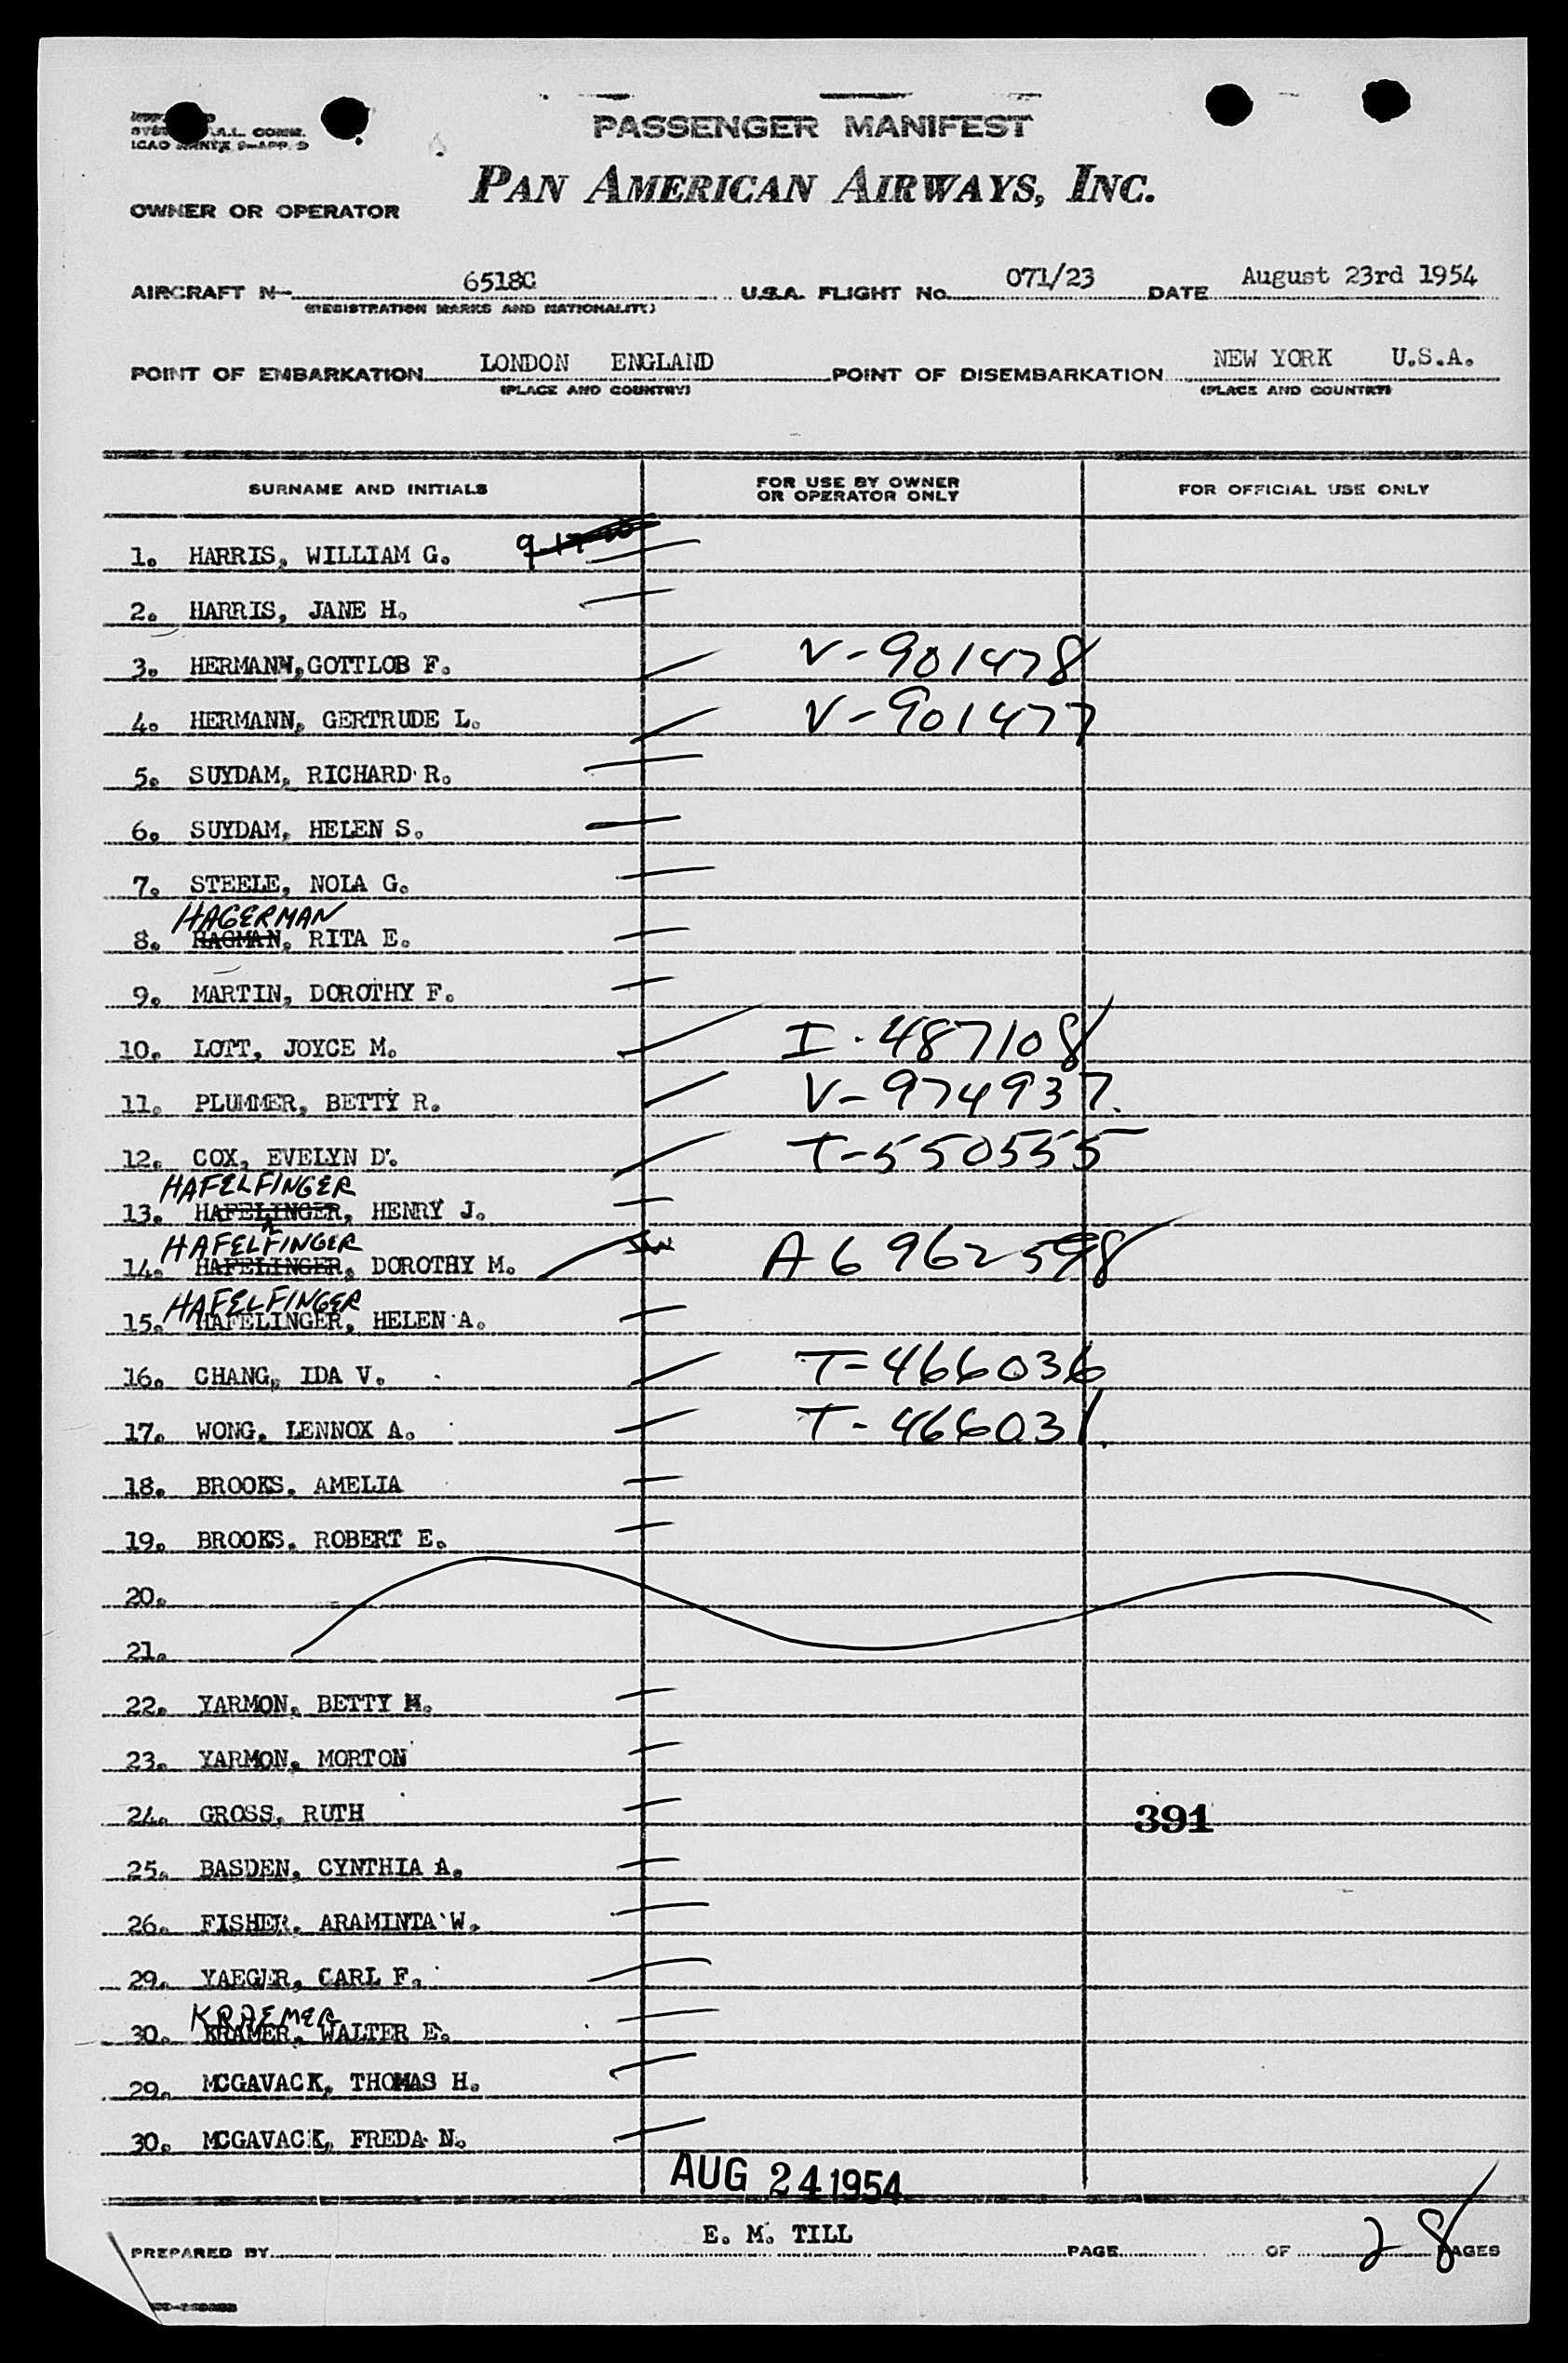 ICAO ANNEX 9-APP. 5
PASSENGER MANIFEST
PAN AMERICAN AIRWAYS, INC.
OWNER OR OPERATOR
AIRCRAFT N- 6518C U.S.A. FLIGHT No. 071/23 DATE August 23rd 1954
(REGISTRATION MARKS AND NATIONALITY)
POINT OF EMBARKATION LONDON ENGLAND POINT OF DISEMBARKATION NEW YORK U.S.A.
(PLACE AND COUNTRY) (PLACE AND COUNTRY)
SURNAME AND INITIALS FOR USE BY OWNER OR OPERATOR ONLY FOR OFFICIAL USE ONLY
1. HARRIS, WILLIAM G.
2. HARRIS, JANE H.
3. HERMANN,GOTTLOB F. V-901478
4. HERMANN, GERTRUDE L. V-901477
5. SUYDAM, RICHARD R.
6. SUYDAM, HELEN S.
7. STEELE, NOLA G.
HAGERMAN
8. HAGMAN, RITA E.
9. MARTIN, DOROTHY F.
10. LOTT, JOYCE M. I-487108
11. PLUMMER, BETTY R. V-974937.
12. COX, EVELYN D. T-550555
HAFELFINGER
13. HAFELINGER, HENRY J.
HAFELFINGER
14. HAFELINGER, DOROTHY M. A6 962598
HAFELFINGER
15. HAFELINGER, HELEN A.
16. CHANG, IDA V. T-466036
17. WONG, LENNOX A. T-466031
18. BROOKS, AMELIA
19. BROOKS, ROBERT E.
20.
21.
22. YARMON, BETTY M.
23. YARMON, MORTON
24. GROSS, RUTH 391
25. BASDEN, CYNTHIA A.
26. FISHER, ARAMINTA W.
29. YAEGER, CARL F.
KRAEMER
30. KRAMER, WALTER E.
29. MCGAVACK, THOMAS H.
30. MCGAVACK, FREDA N.
AUG 24 1954
E. M. TILL
PREPARED BY PAGE OF 28 PAGES